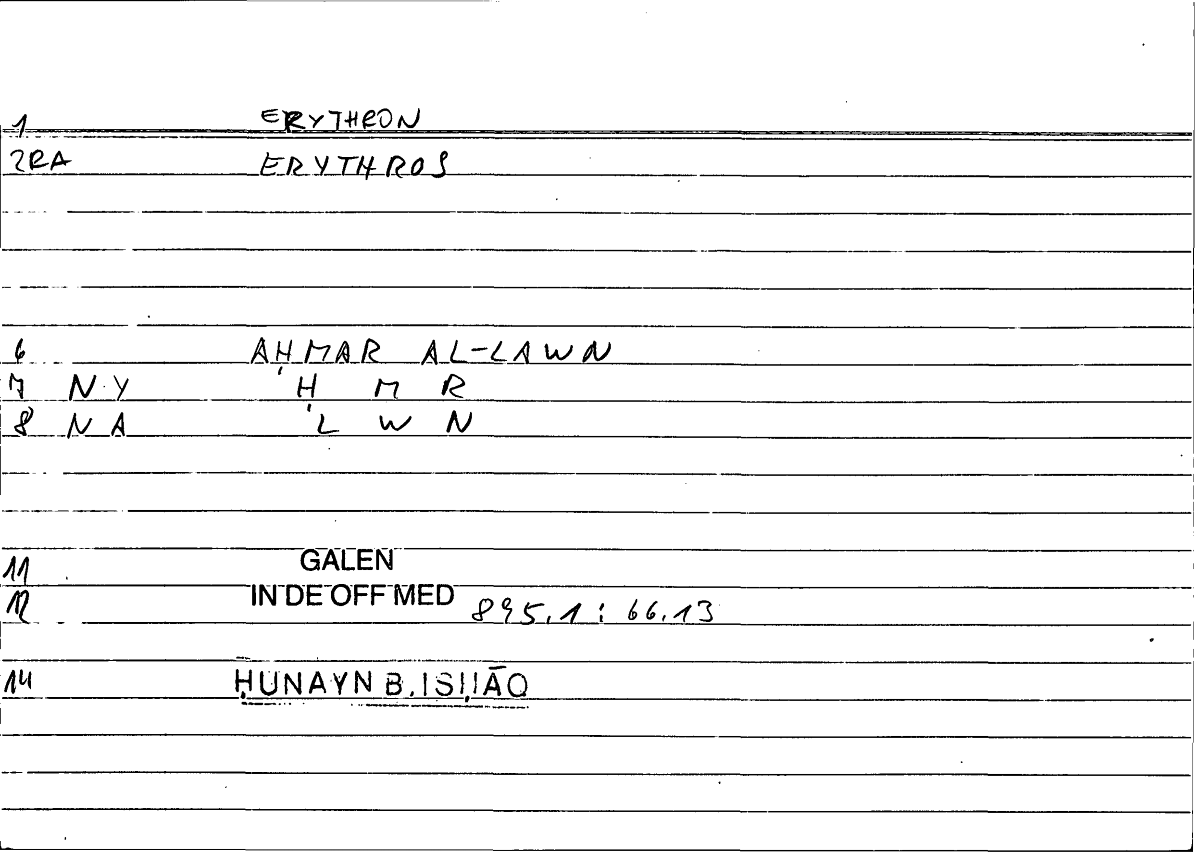 1 ERYTHRON
2RA ERYTHROS
6 AḤMAR AL-LAWN
7 NY 'Ḥ M R
8 NA 'L W N
11 GALEN
12 IN DE OFF MED 895.1 : 66.13
14 ḤUNAYN B. ISḤĀQ